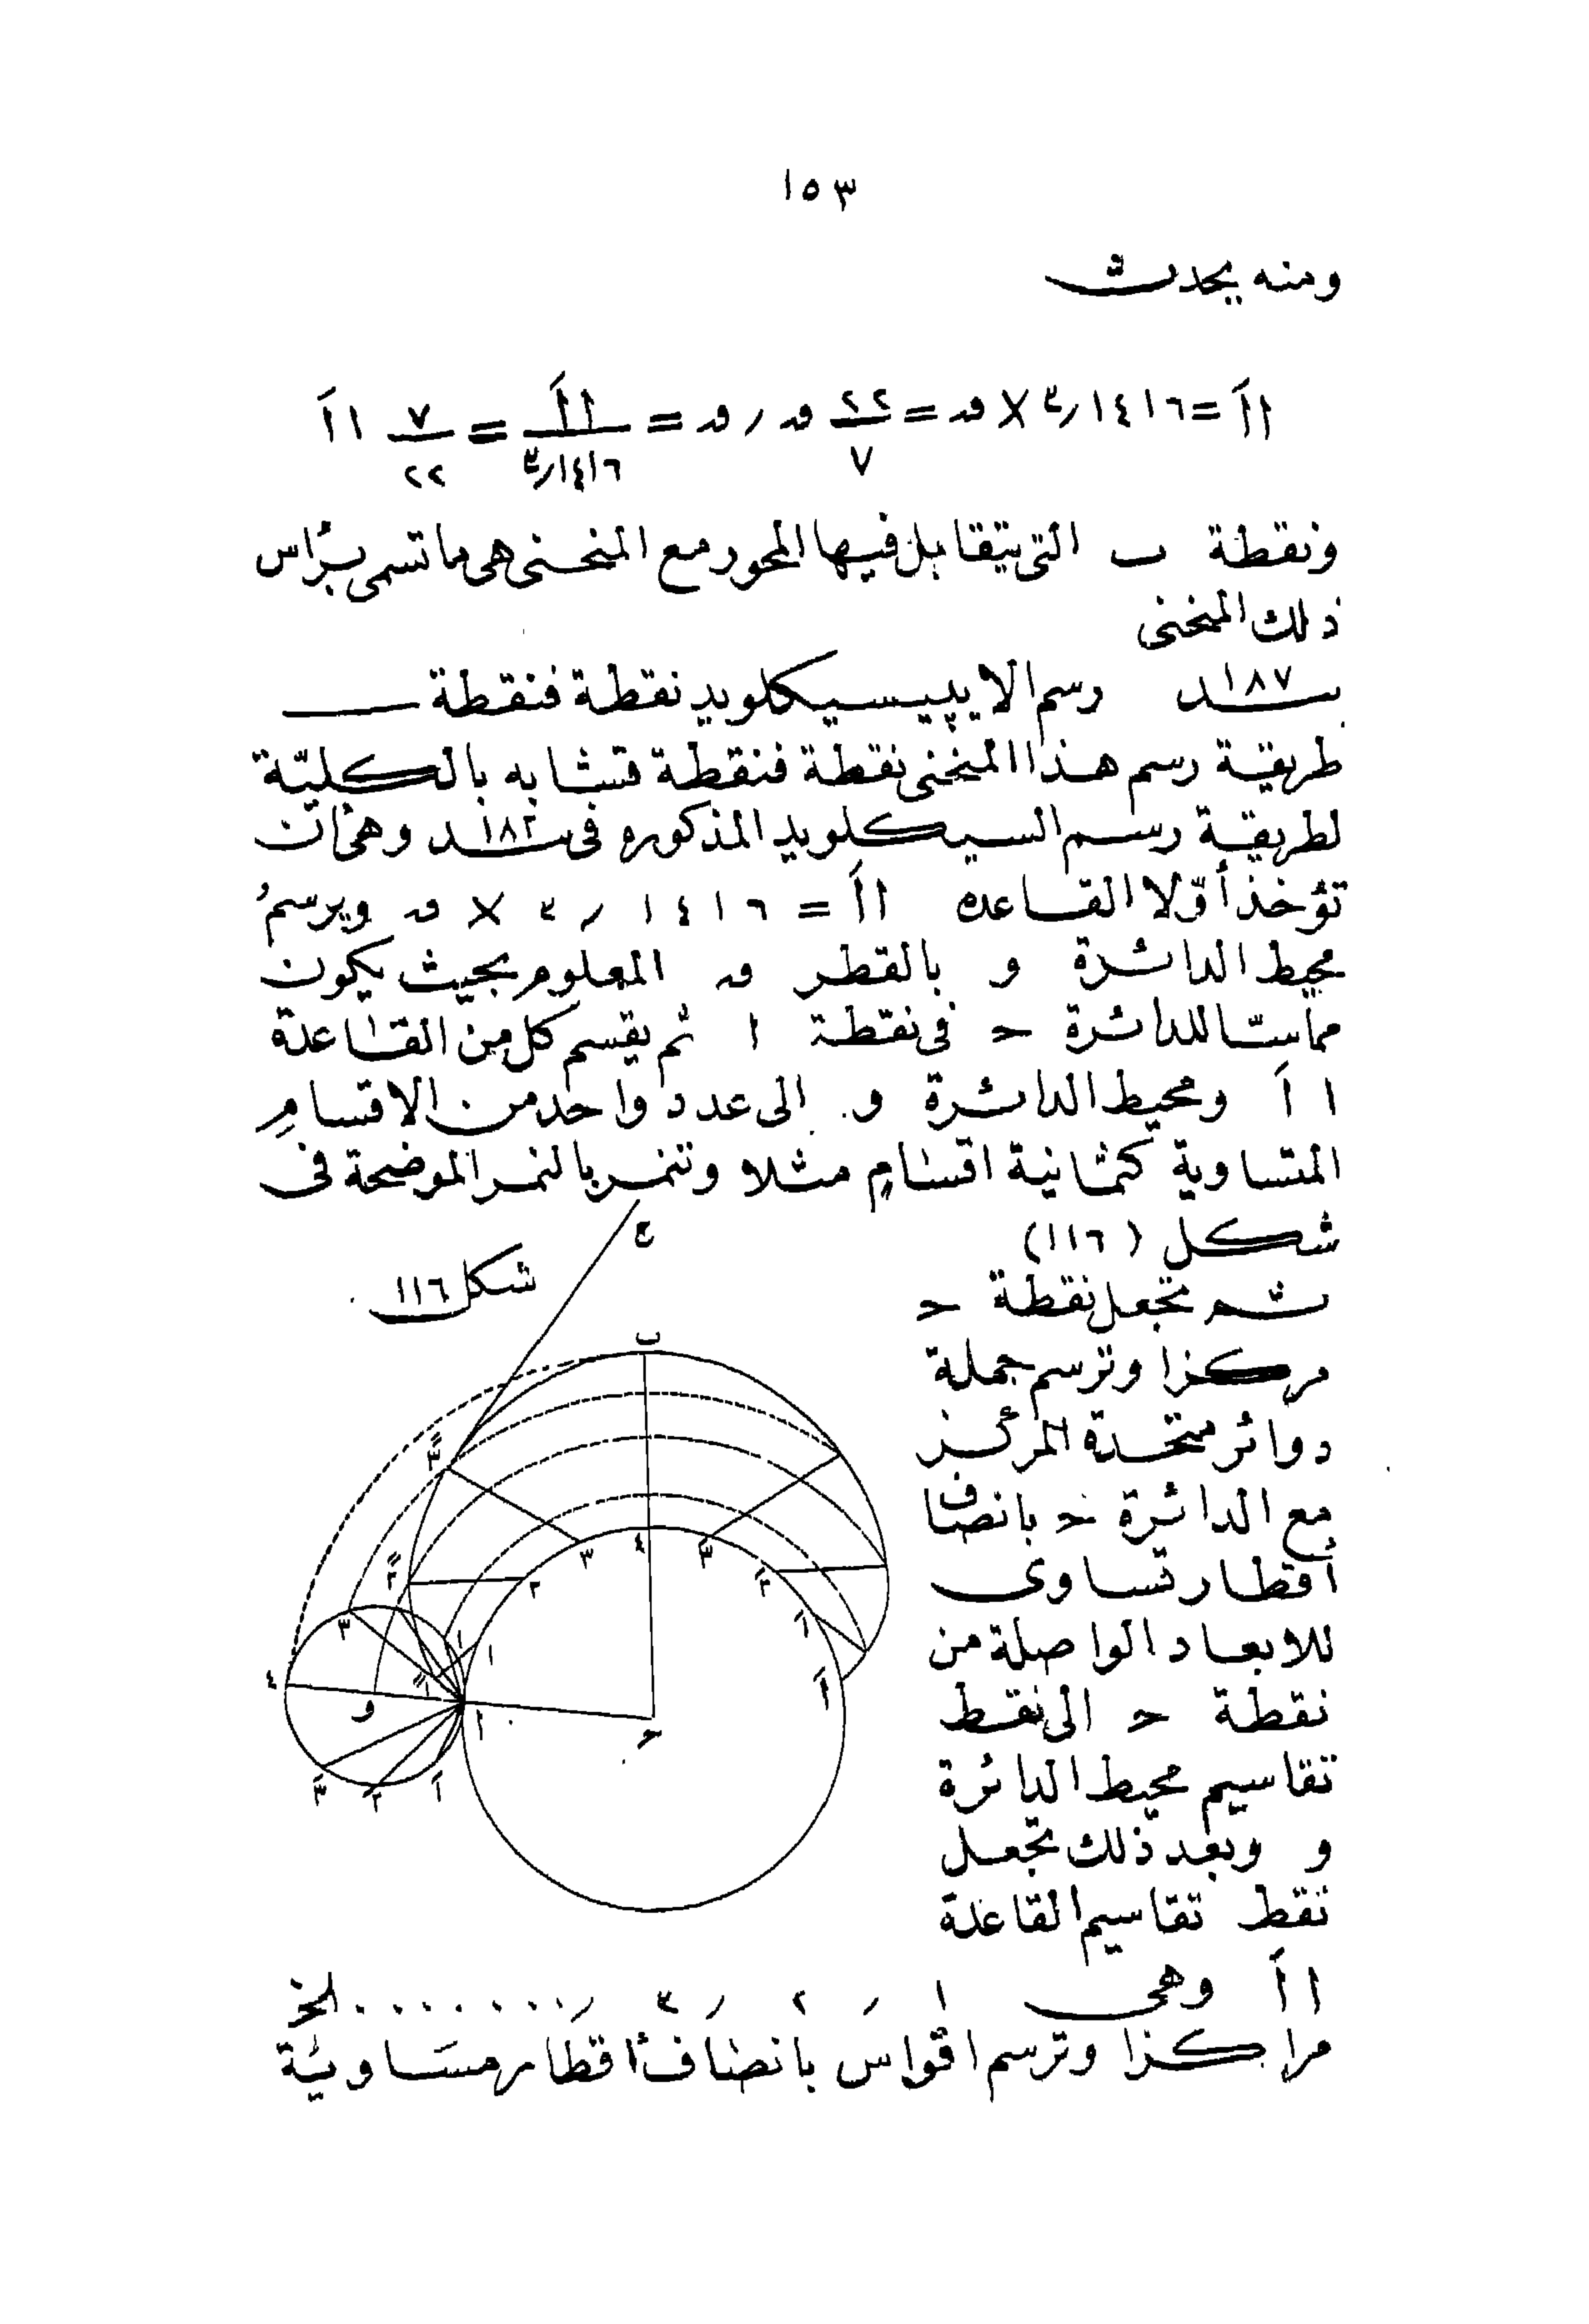 ١٥٣
ومنه يحدث
ااَ = ٣٫١٤١٦ × ق = ٢٢/٧ ق ، ق = ااَ/٣٫١٤١٦ = ٧/٢٢ ااَ
ونقطة ب التى يتقابل فيها المحور مع المنحنى هى ما تسمى برأس
ذلك المنحنى
١٨٧ رسم الايپيسيكلويد نقطة فنقطة
طريقة رسم هذا المنحنى نقطة فنقطة تتشابه بالكليّة
لطريقة رسم السيكلويد المذكوره فى ١٨٢ وهى أن
تؤخذ أوّلا القاعده ااَ = ٣٫١٤١٦ × ق ويرسم
محيط الدائرة و بالقطر ق المعلوم بحيث يكون
مماسّا للدائرة ح فى نقطة ا ثم يقسم كل من القاعدة
ا اَ ومحيط الدائرة و الى عدد واحد من الاقسام
المتساوية كثمانية اقسام مثلا وتنمر بالنمر الموضحة فى
شكل (١١٦)
ثم تجعل نقطة ح
مركزا وترسم جملة
دوائر متحدة المركز
مع الدائرة ح بانصاف
أقطار تساوى
للابعاد الواصلة من
نقطة ح الى نقط
تقاسيم محيط الدائرة
و وبعد ذلك تجعل
نقط تقاسيم القاعدة
ا اَ وهى ١ ، ٢ ، ٣ ، ........ الخ
مراكزا وترسم اقواس بانصاف أقطار مساوية
شكل ١١٦
ع
ب
٣ً
٢ً
١ً
٣
٤
٣َ
٢
٢َ
١
١َ
اَ
٣
٤
و
ا
ح
٣َ
٢
١َ